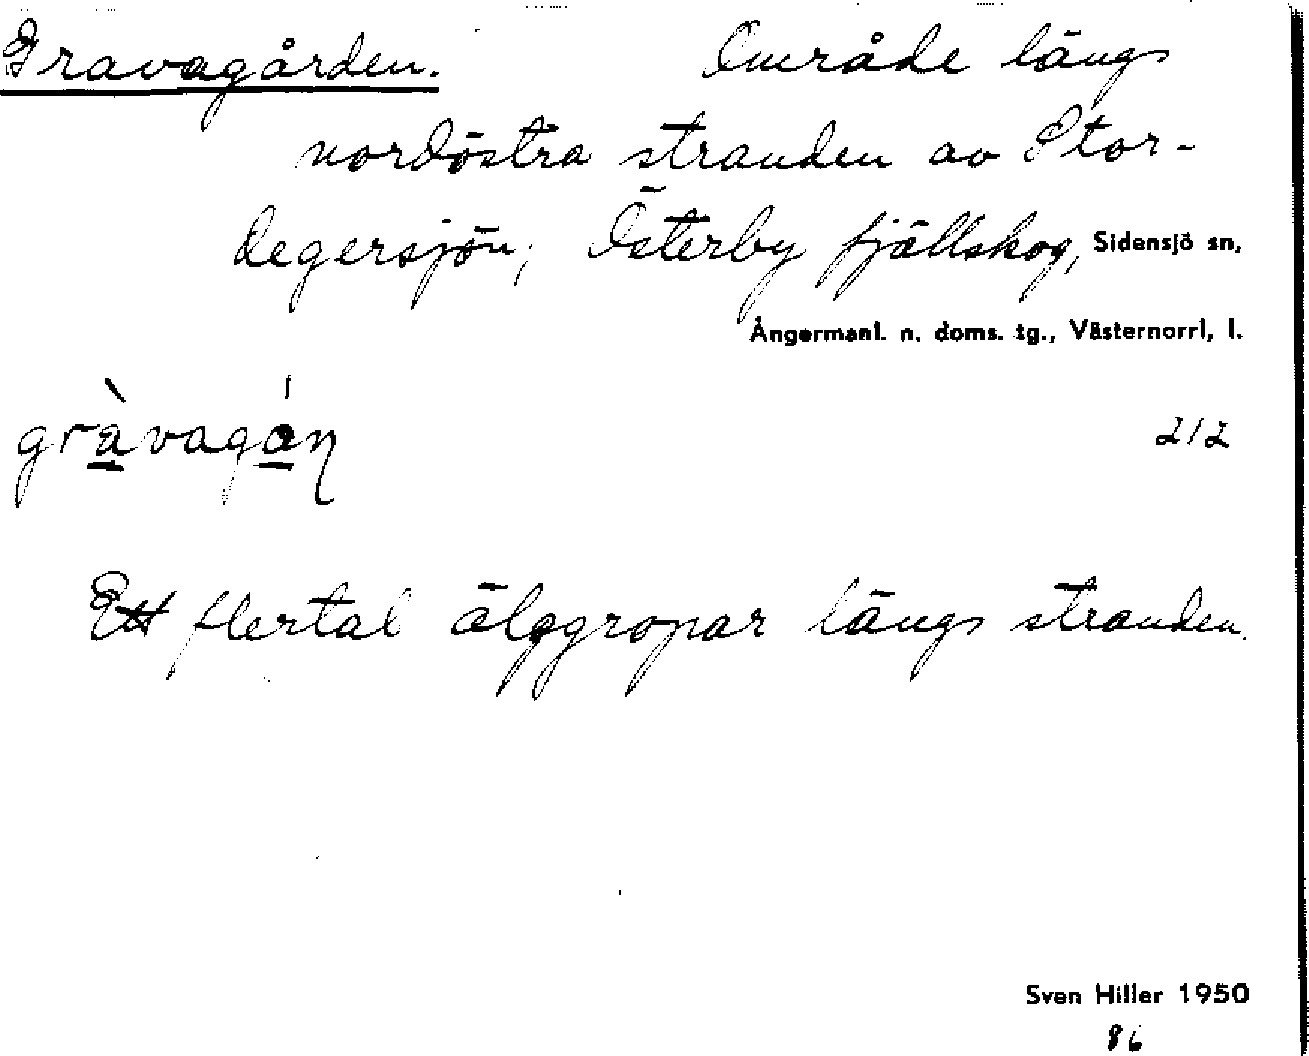 Gravagården. Område längs
nordöstra stranden av Stor-
degersjön; Österby fjällskog, Sidensjö sn,
Ångermanl. n. doms. tg., Västernorrl, l.
gràvagán 212
Ett flertal älggropar längs stranden.
Sven Hiller 1950
86